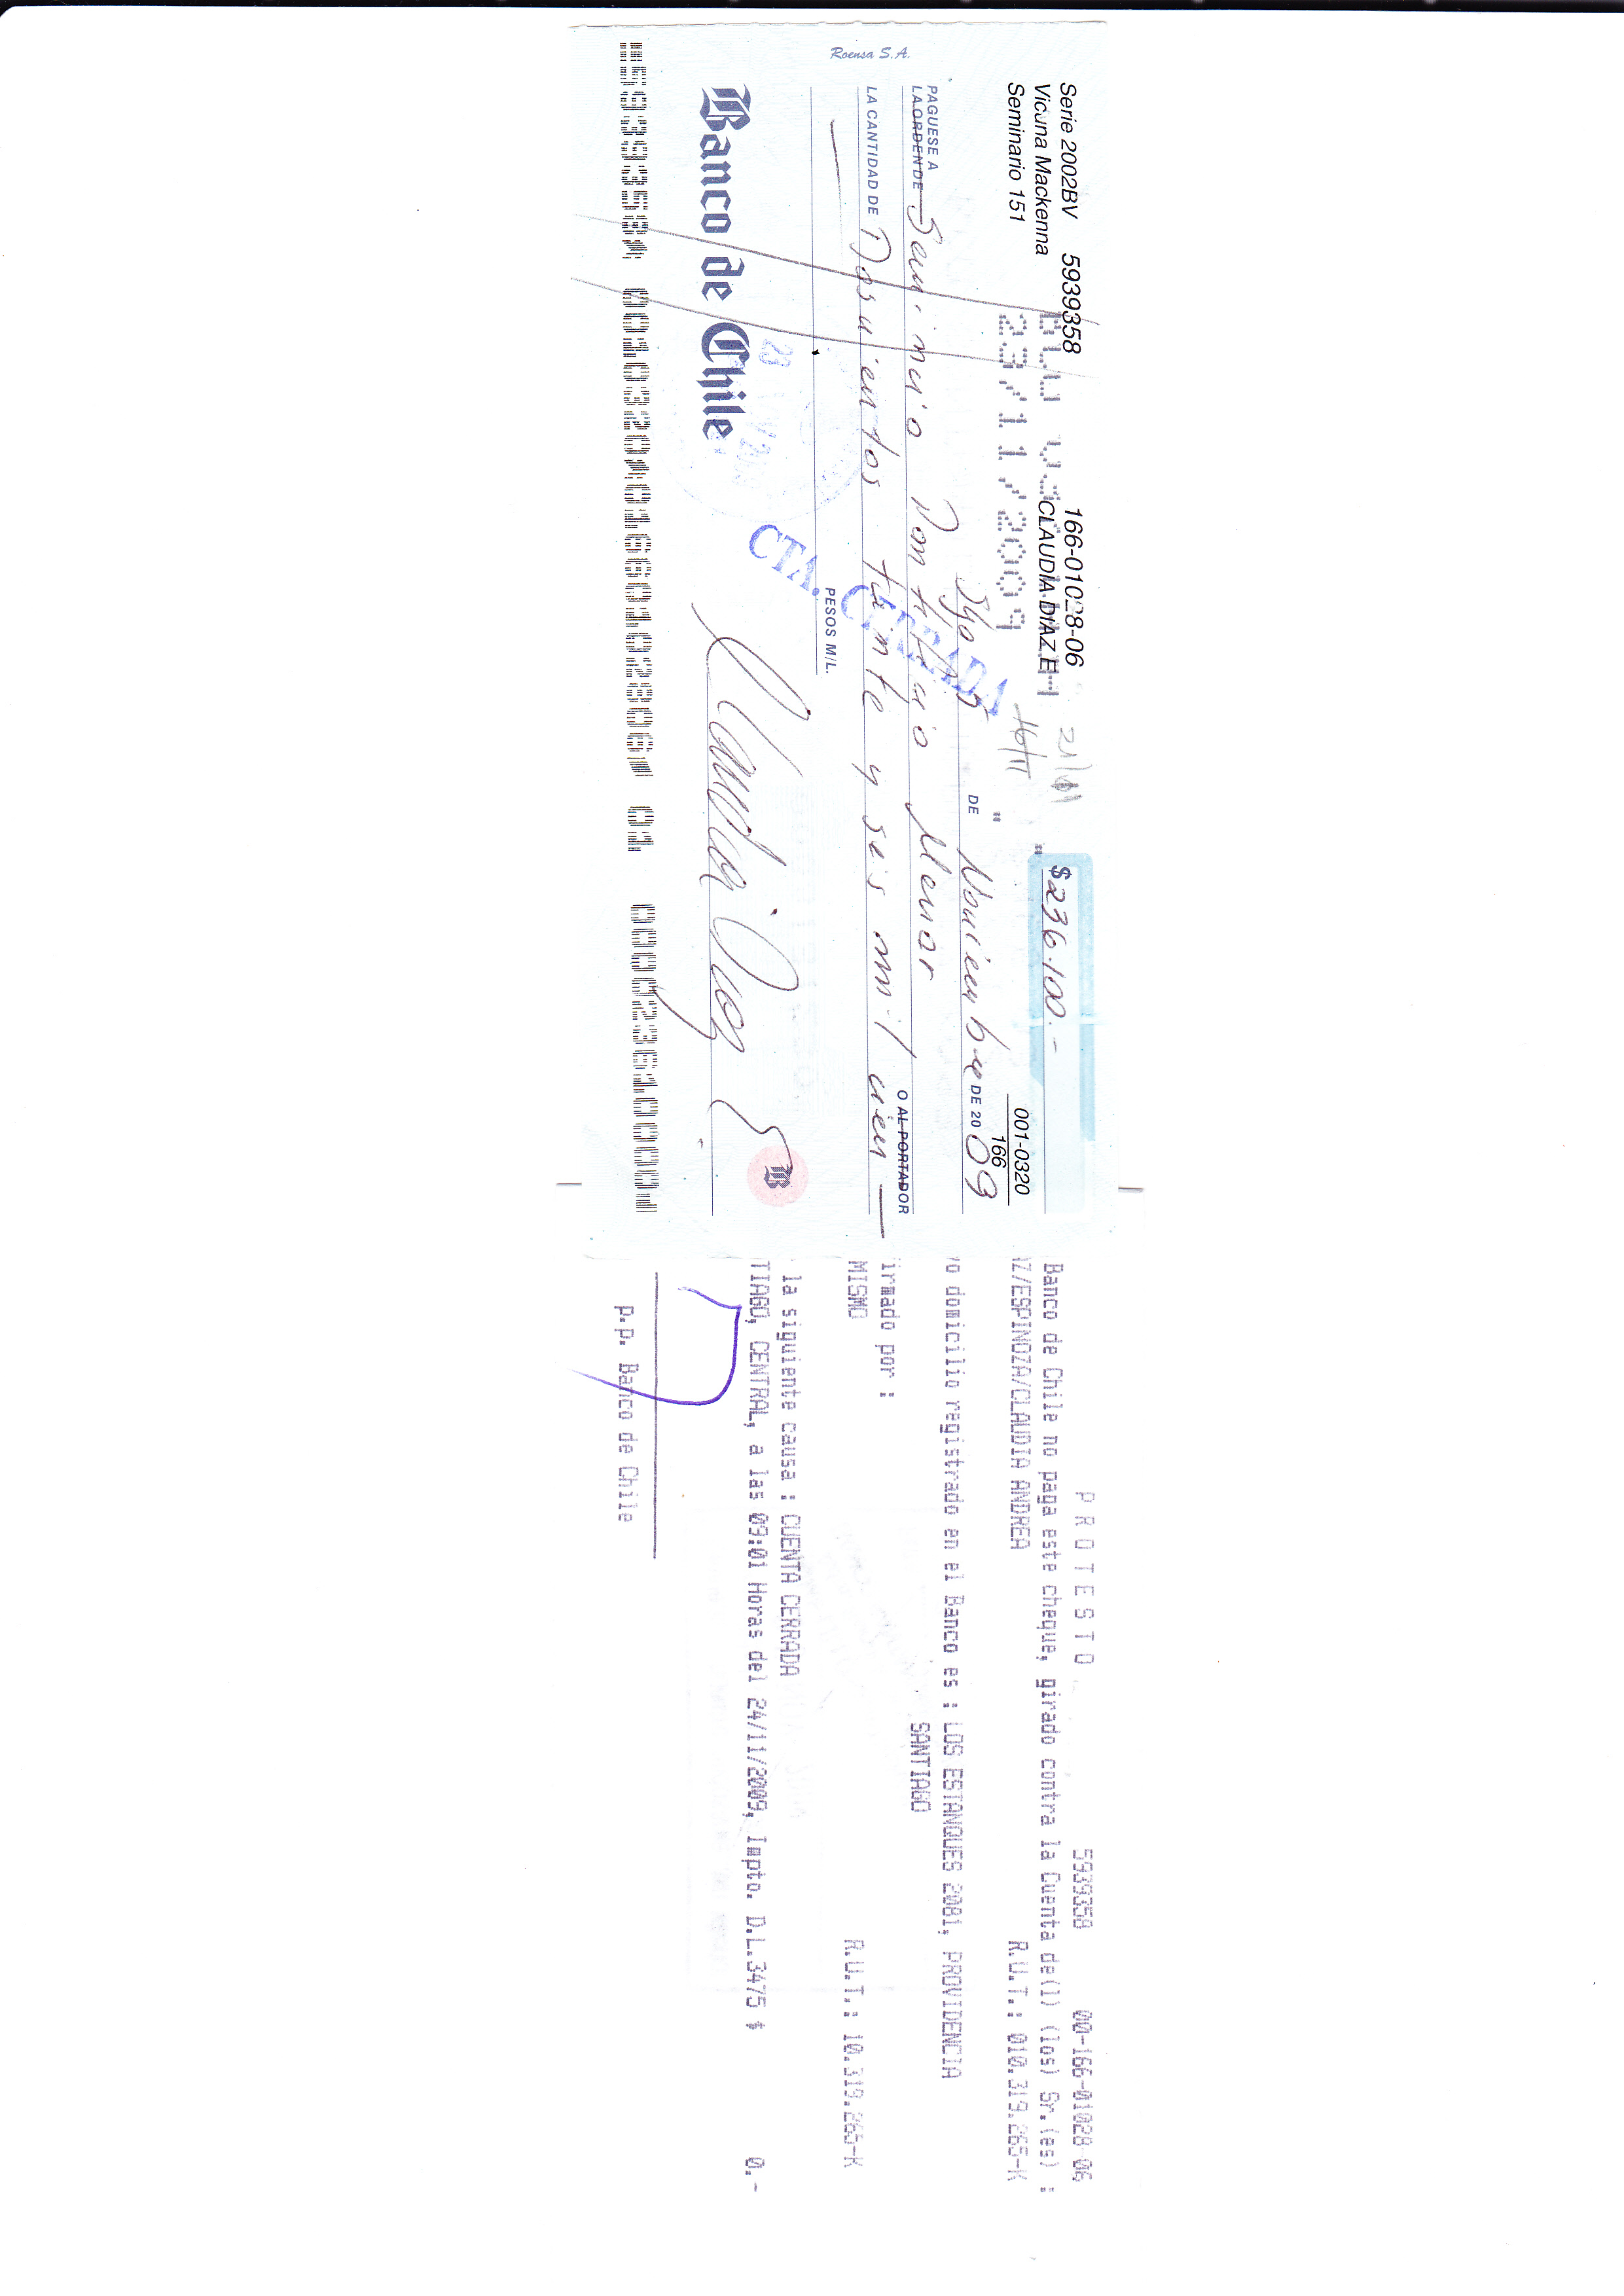 Serie 2002BV 5939358 166-01028-06
Vicuna Mackenna CLAUDIA DIAZ E
Seminario 151
23/11/2009
16/11
$ 236.100.-
001-0320
166
Stgo DE Noviembre DE 2009
PAGUESE A
LA ORDEN DE Seminario Pontificio Menor
O AL PORTADOR
LA CANTIDAD DE Doscientos treinta y seis mil cien
PESOS M/L.
CTA. CERRADA
Banco de Chile
Roensa S.A.
P R O T E S T O 5939358 00-166-01028 06
Banco de Chile no paga este cheque, girado contra la Cuenta de(l) (los) Sr.(es) :
AZ/ESPINOZA/CLAUDIA ANDREA R.U.T.: 010.319.265-K
yo domicilio registrado en el Banco es : LOS ESTANQUES 2081, PROVIDENCIA
SANTIAGO
irmado por :
MISMO R.U.T.: 10.319.265-K
la siguiente causa : CUENTA CERRADA
TIAGO, CENTRAL, a las 09:01 Horas del 24/11/2009, Impto. D.L.3475 $ 0.-
p.p. Banco de Chile